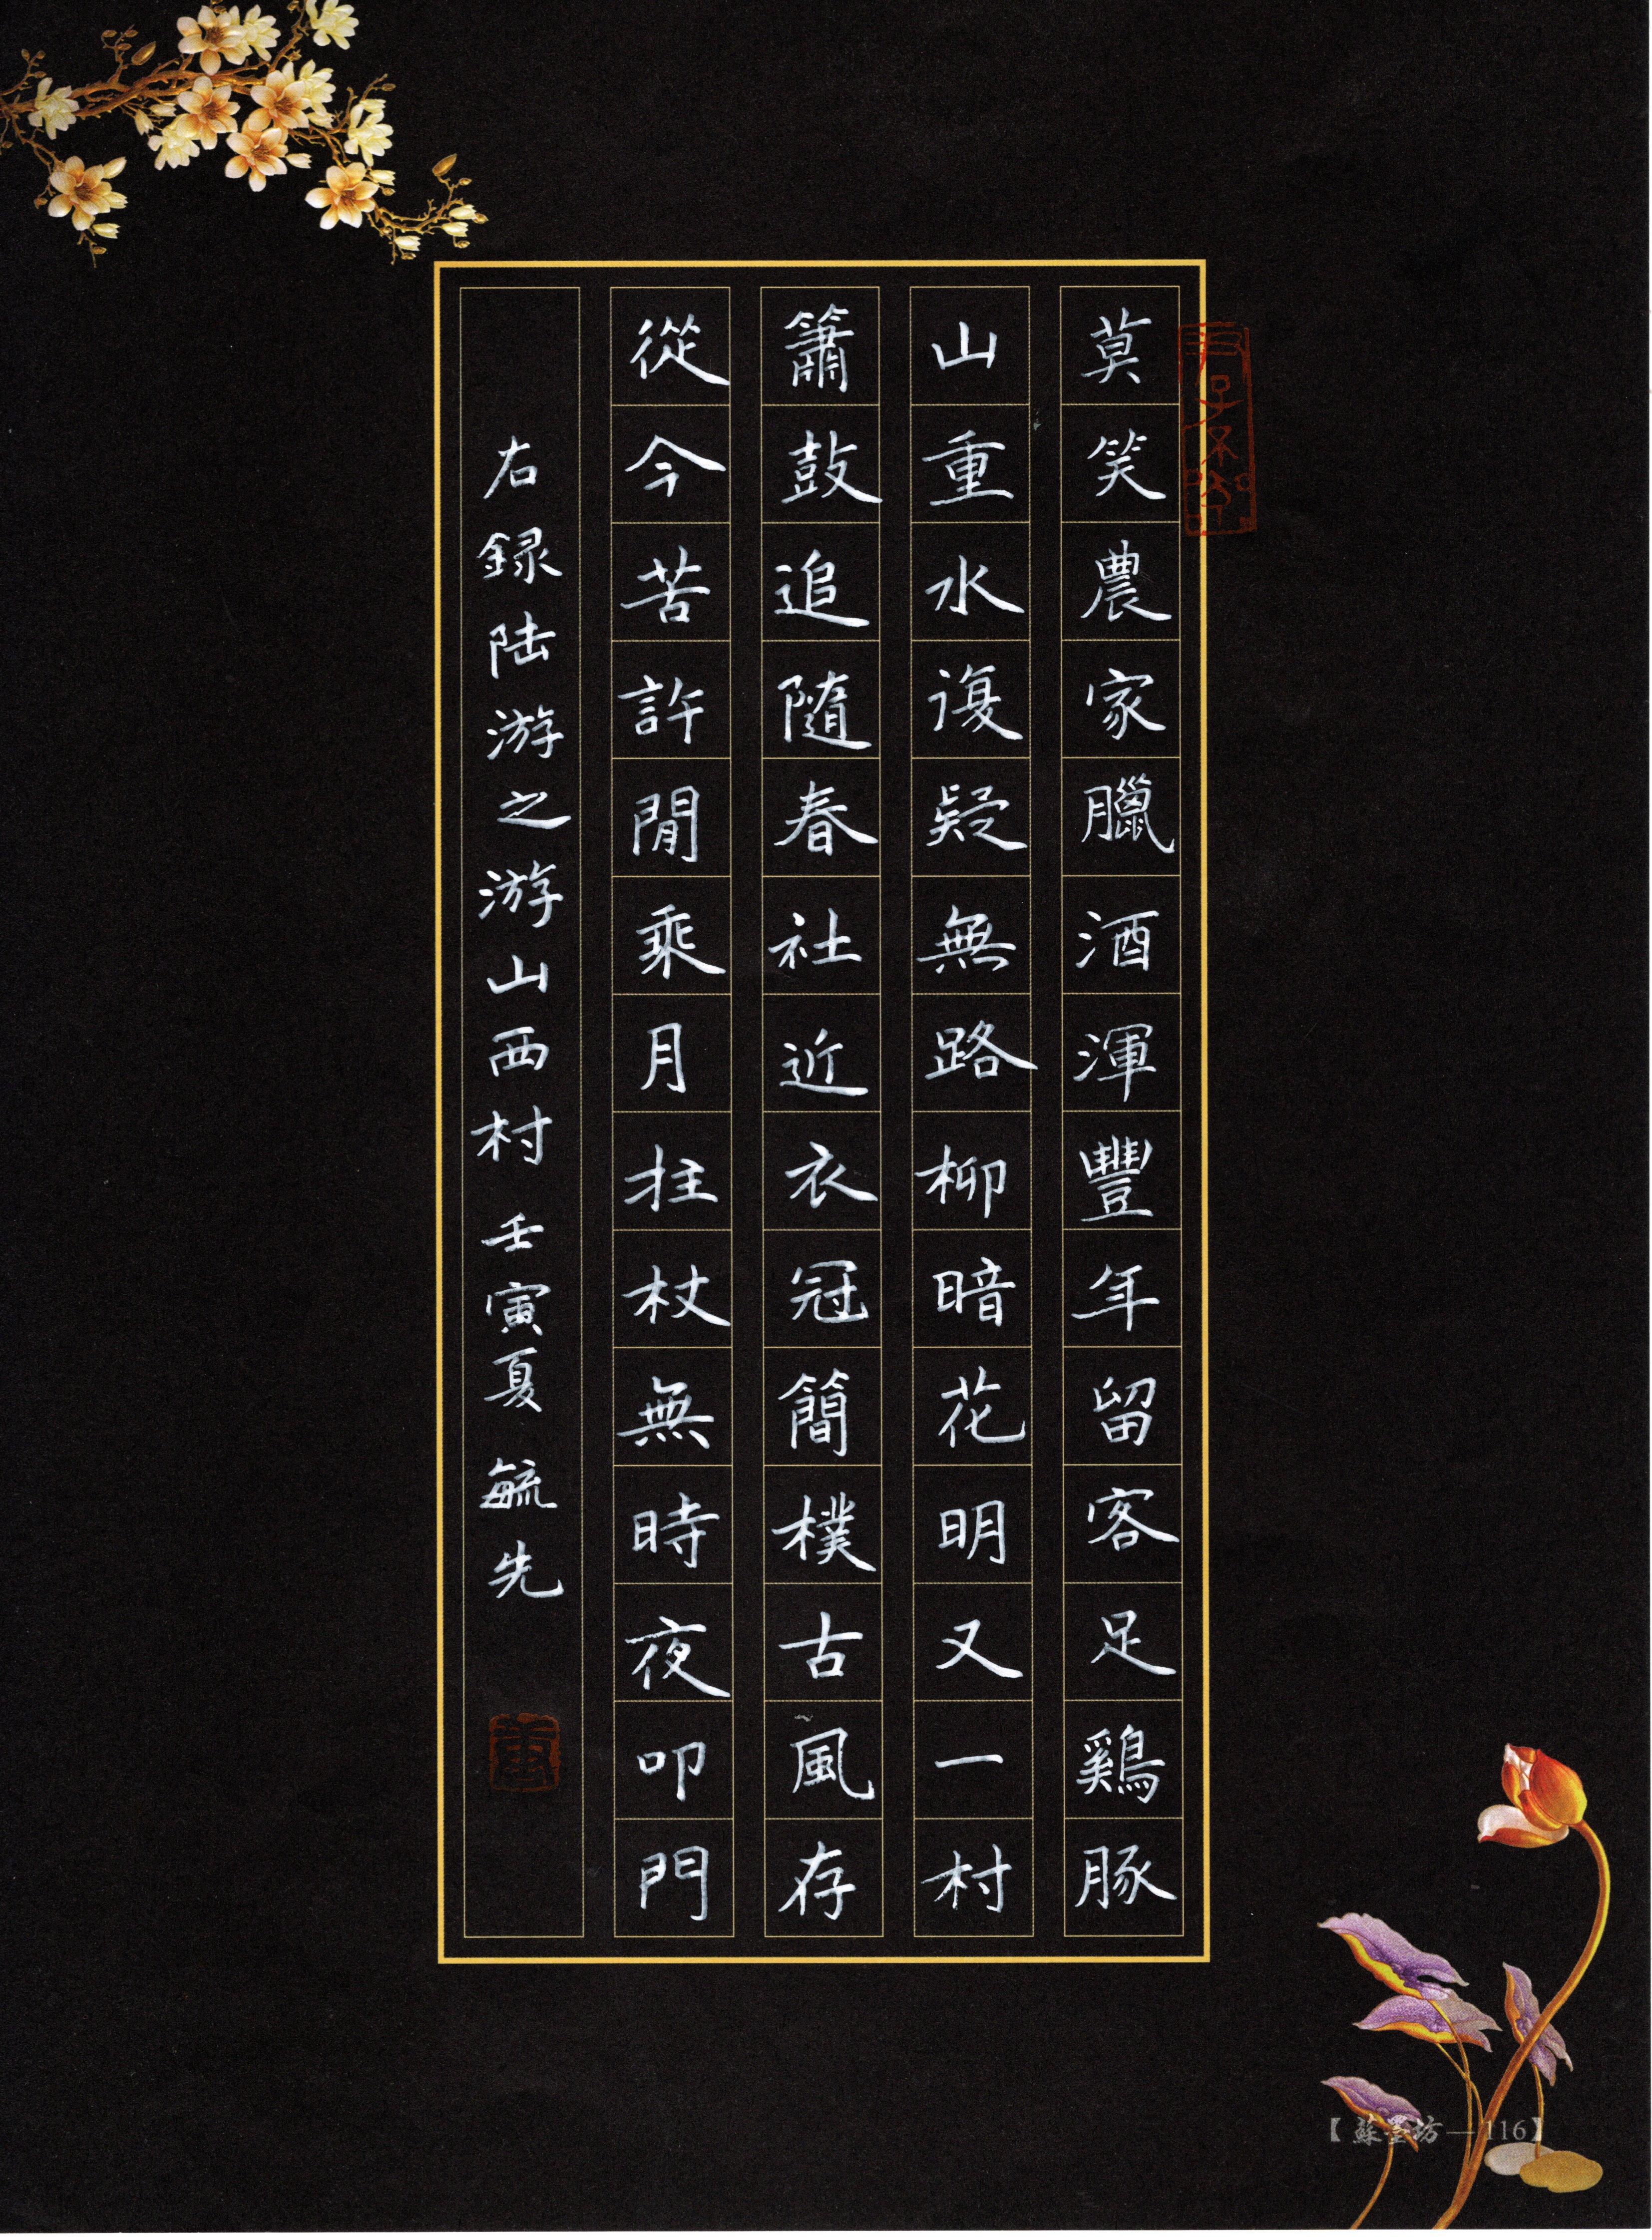 莫笑農家臘酒渾豐年留客足鷄豚
山重水複疑無路柳暗花明又一村
簫鼓追隨春社近衣冠簡樸古風存
從今苦許閒乘月拄杖無時夜叩門
右録陆游之游山西村 壬寅夏 毓先
君子不器
【蘇墨坊—116】